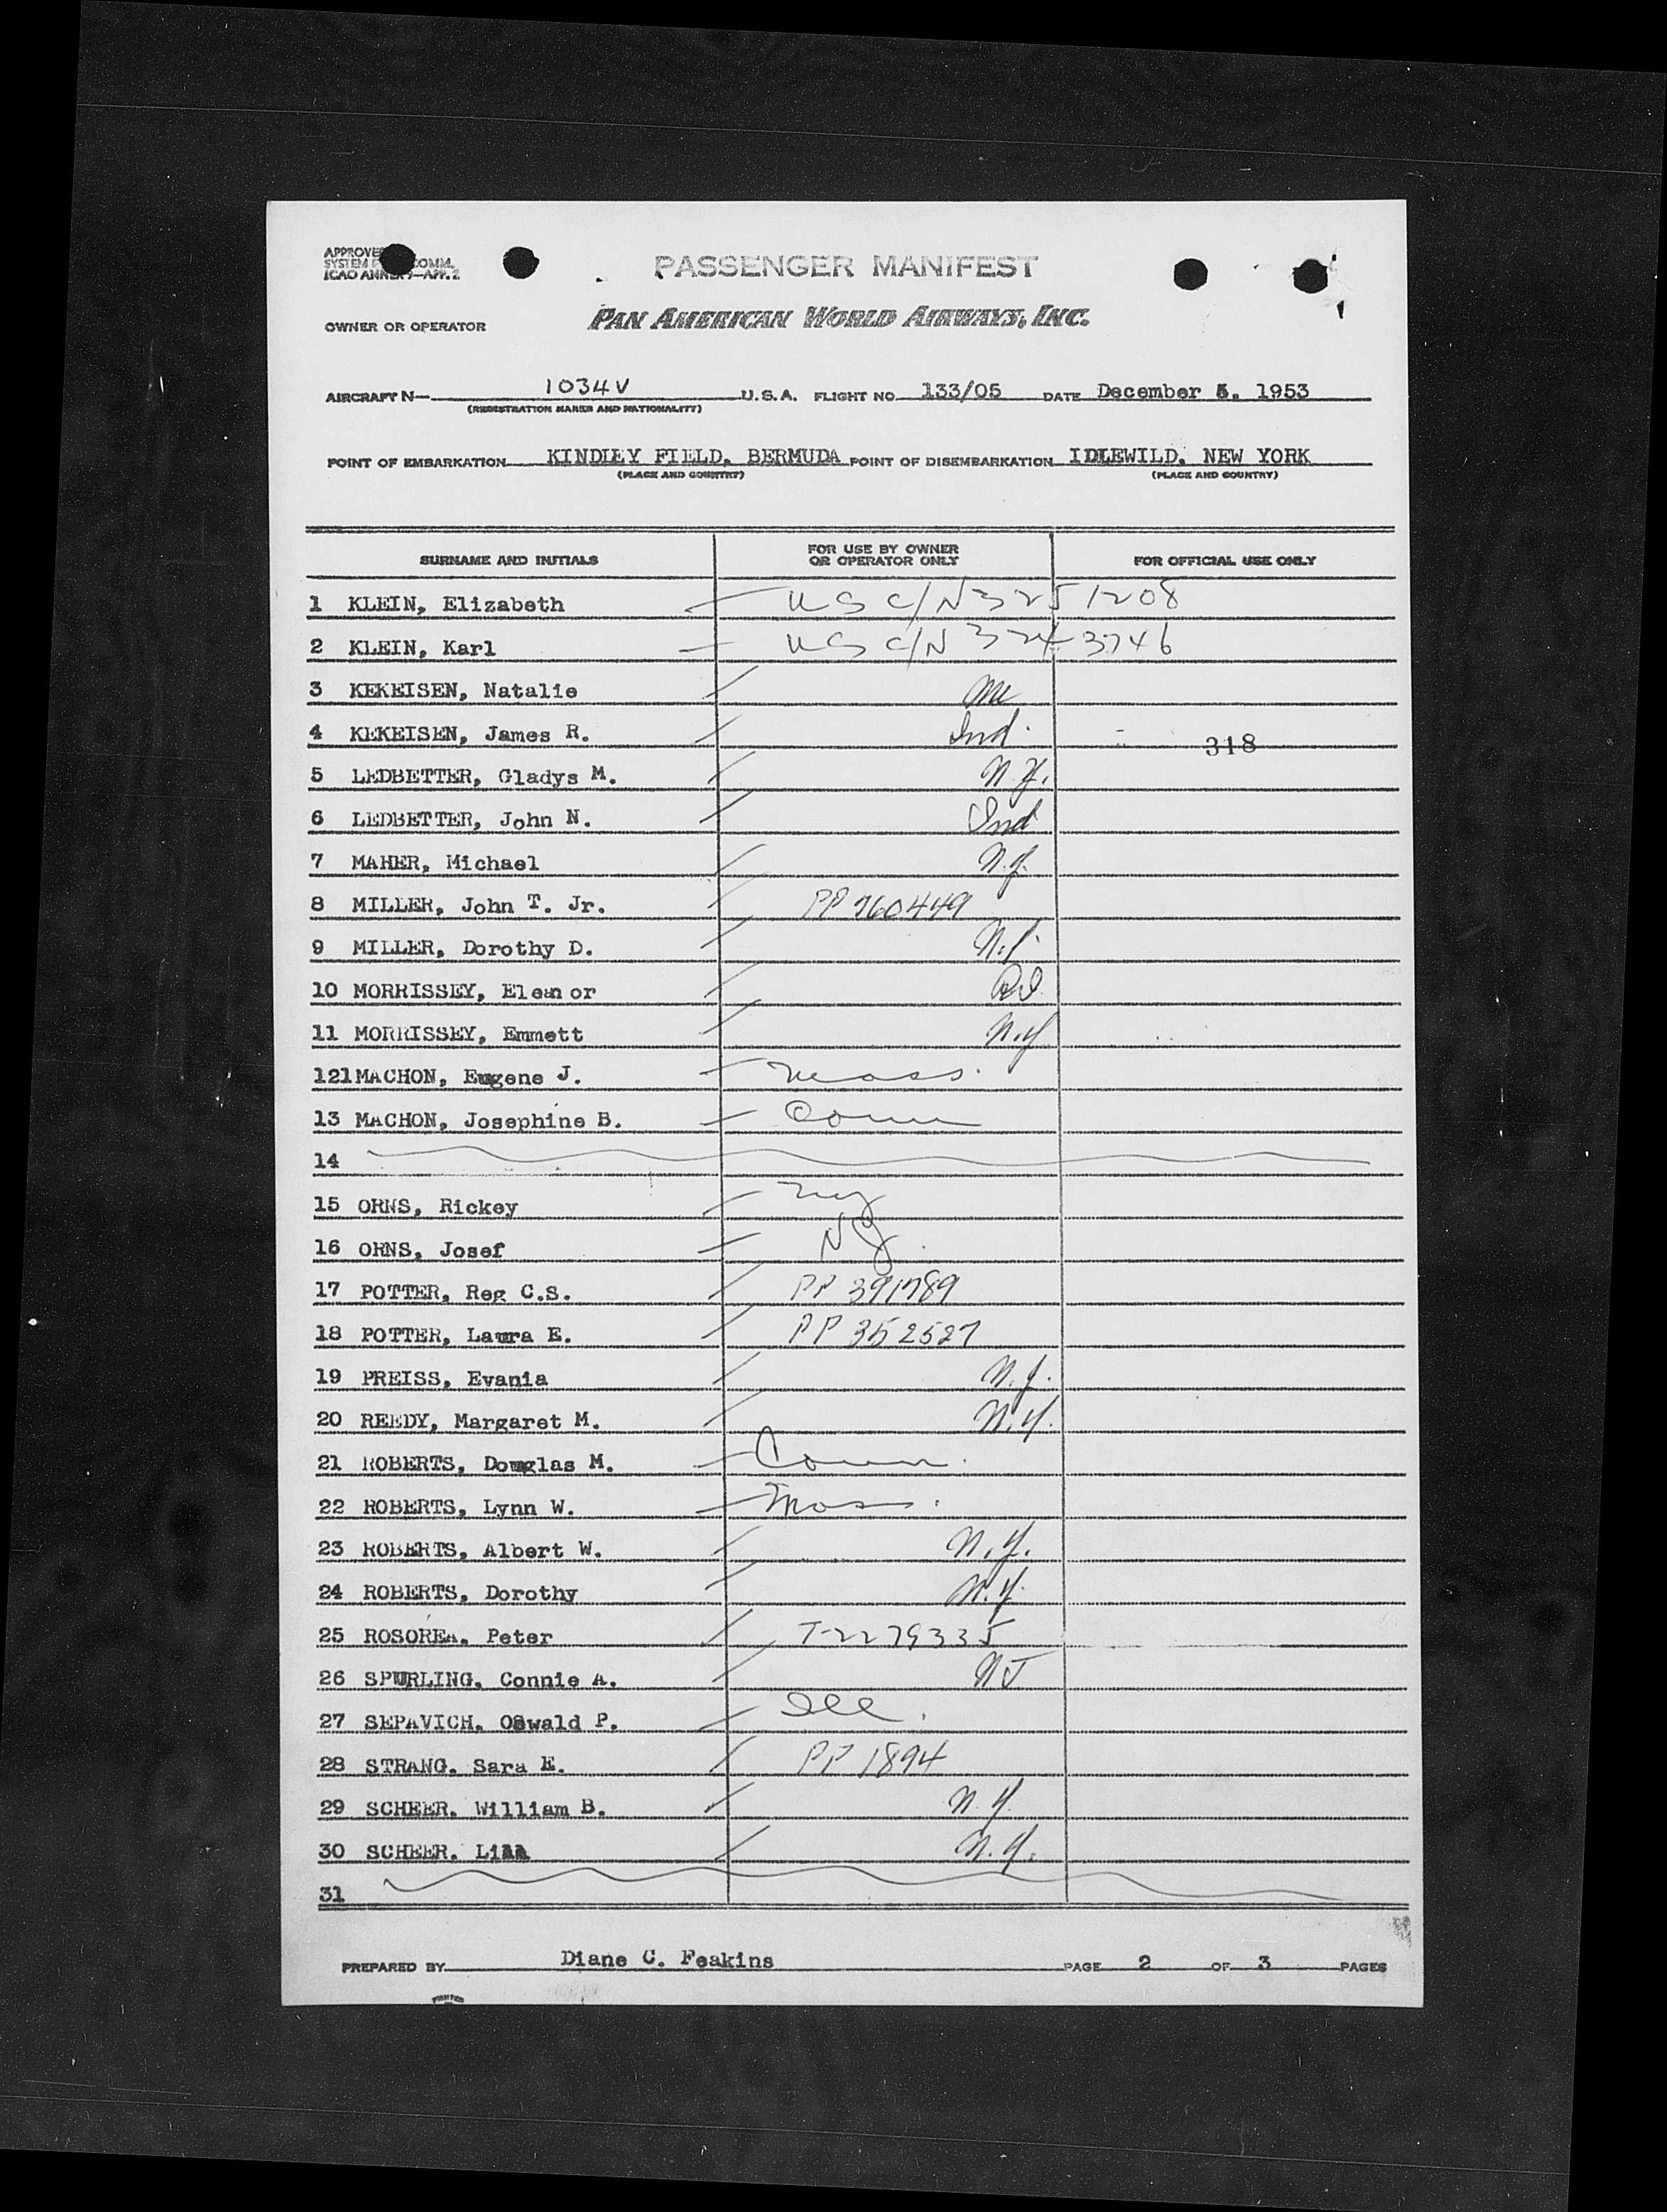 PASSENGER MANIFEST
PAN AMERICAN WORLD AIRWAYS, INC.
OWNER OR OPERATOR
AIRCRAFT N— 1034V U.S.A. FLIGHT NO. 133/05 DATE December 5, 1953
(REGISTRATION MARKS AND NATIONALITY)
POINT OF EMBARKATION KINDLEY FIELD, BERMUDA POINT OF DISEMBARKATION IDLEWILD, NEW YORK
(PLACE AND COUNTRY) (PLACE AND COUNTRY)
SURNAME AND INITIALS FOR USE BY OWNER OR OPERATOR ONLY FOR OFFICIAL USE ONLY
1 KLEIN, Elizabeth US C/N 3251208
2 KLEIN, Karl US C/N 3243746
3 KEKEISEN, Natalie
4 KEKEISEN, James R. Ind. 318
5 LEDBETTER, Gladys M. N.Y.
6 LEDBETTER, John N. Ind
7 MAHER, Michael N.J.
8 MILLER, John T. Jr. PP 760449
9 MILLER, Dorothy D. N.J.
10 MORRISSEY, Eleanor RI
11 MORRISSEY, Emmett N.Y
121MACHON, Eugene J. Mass.
13 MACHON, Josephine B. Conn
14
15 ORNS, Rickey NY
16 ORNS, Josef NJ
17 POTTER, Reg C.S. PP 391789
18 POTTER, Laura E. PP 352527
19 PREISS, Evania N.J.
20 REEDY, Margaret M. N.Y.
21 ROBERTS, Douglas M. Conn.
22 ROBERTS, Lynn W. Mass.
23 ROBERTS, Albert W. N.Y.
24 ROBERTS, Dorothy N.Y.
25 ROSOREA, Peter T-2279335
26 SPURLING, Connie A. NJ
27 SEPAVICH, Oswald P. Ill.
28 STRANG, Sara E. PP 1894
29 SCHEER, William B. N.Y.
30 SCHEER, N.Y.
31
PREPARED BY Diane C. Feakins PAGE 2 OF 3 PAGES